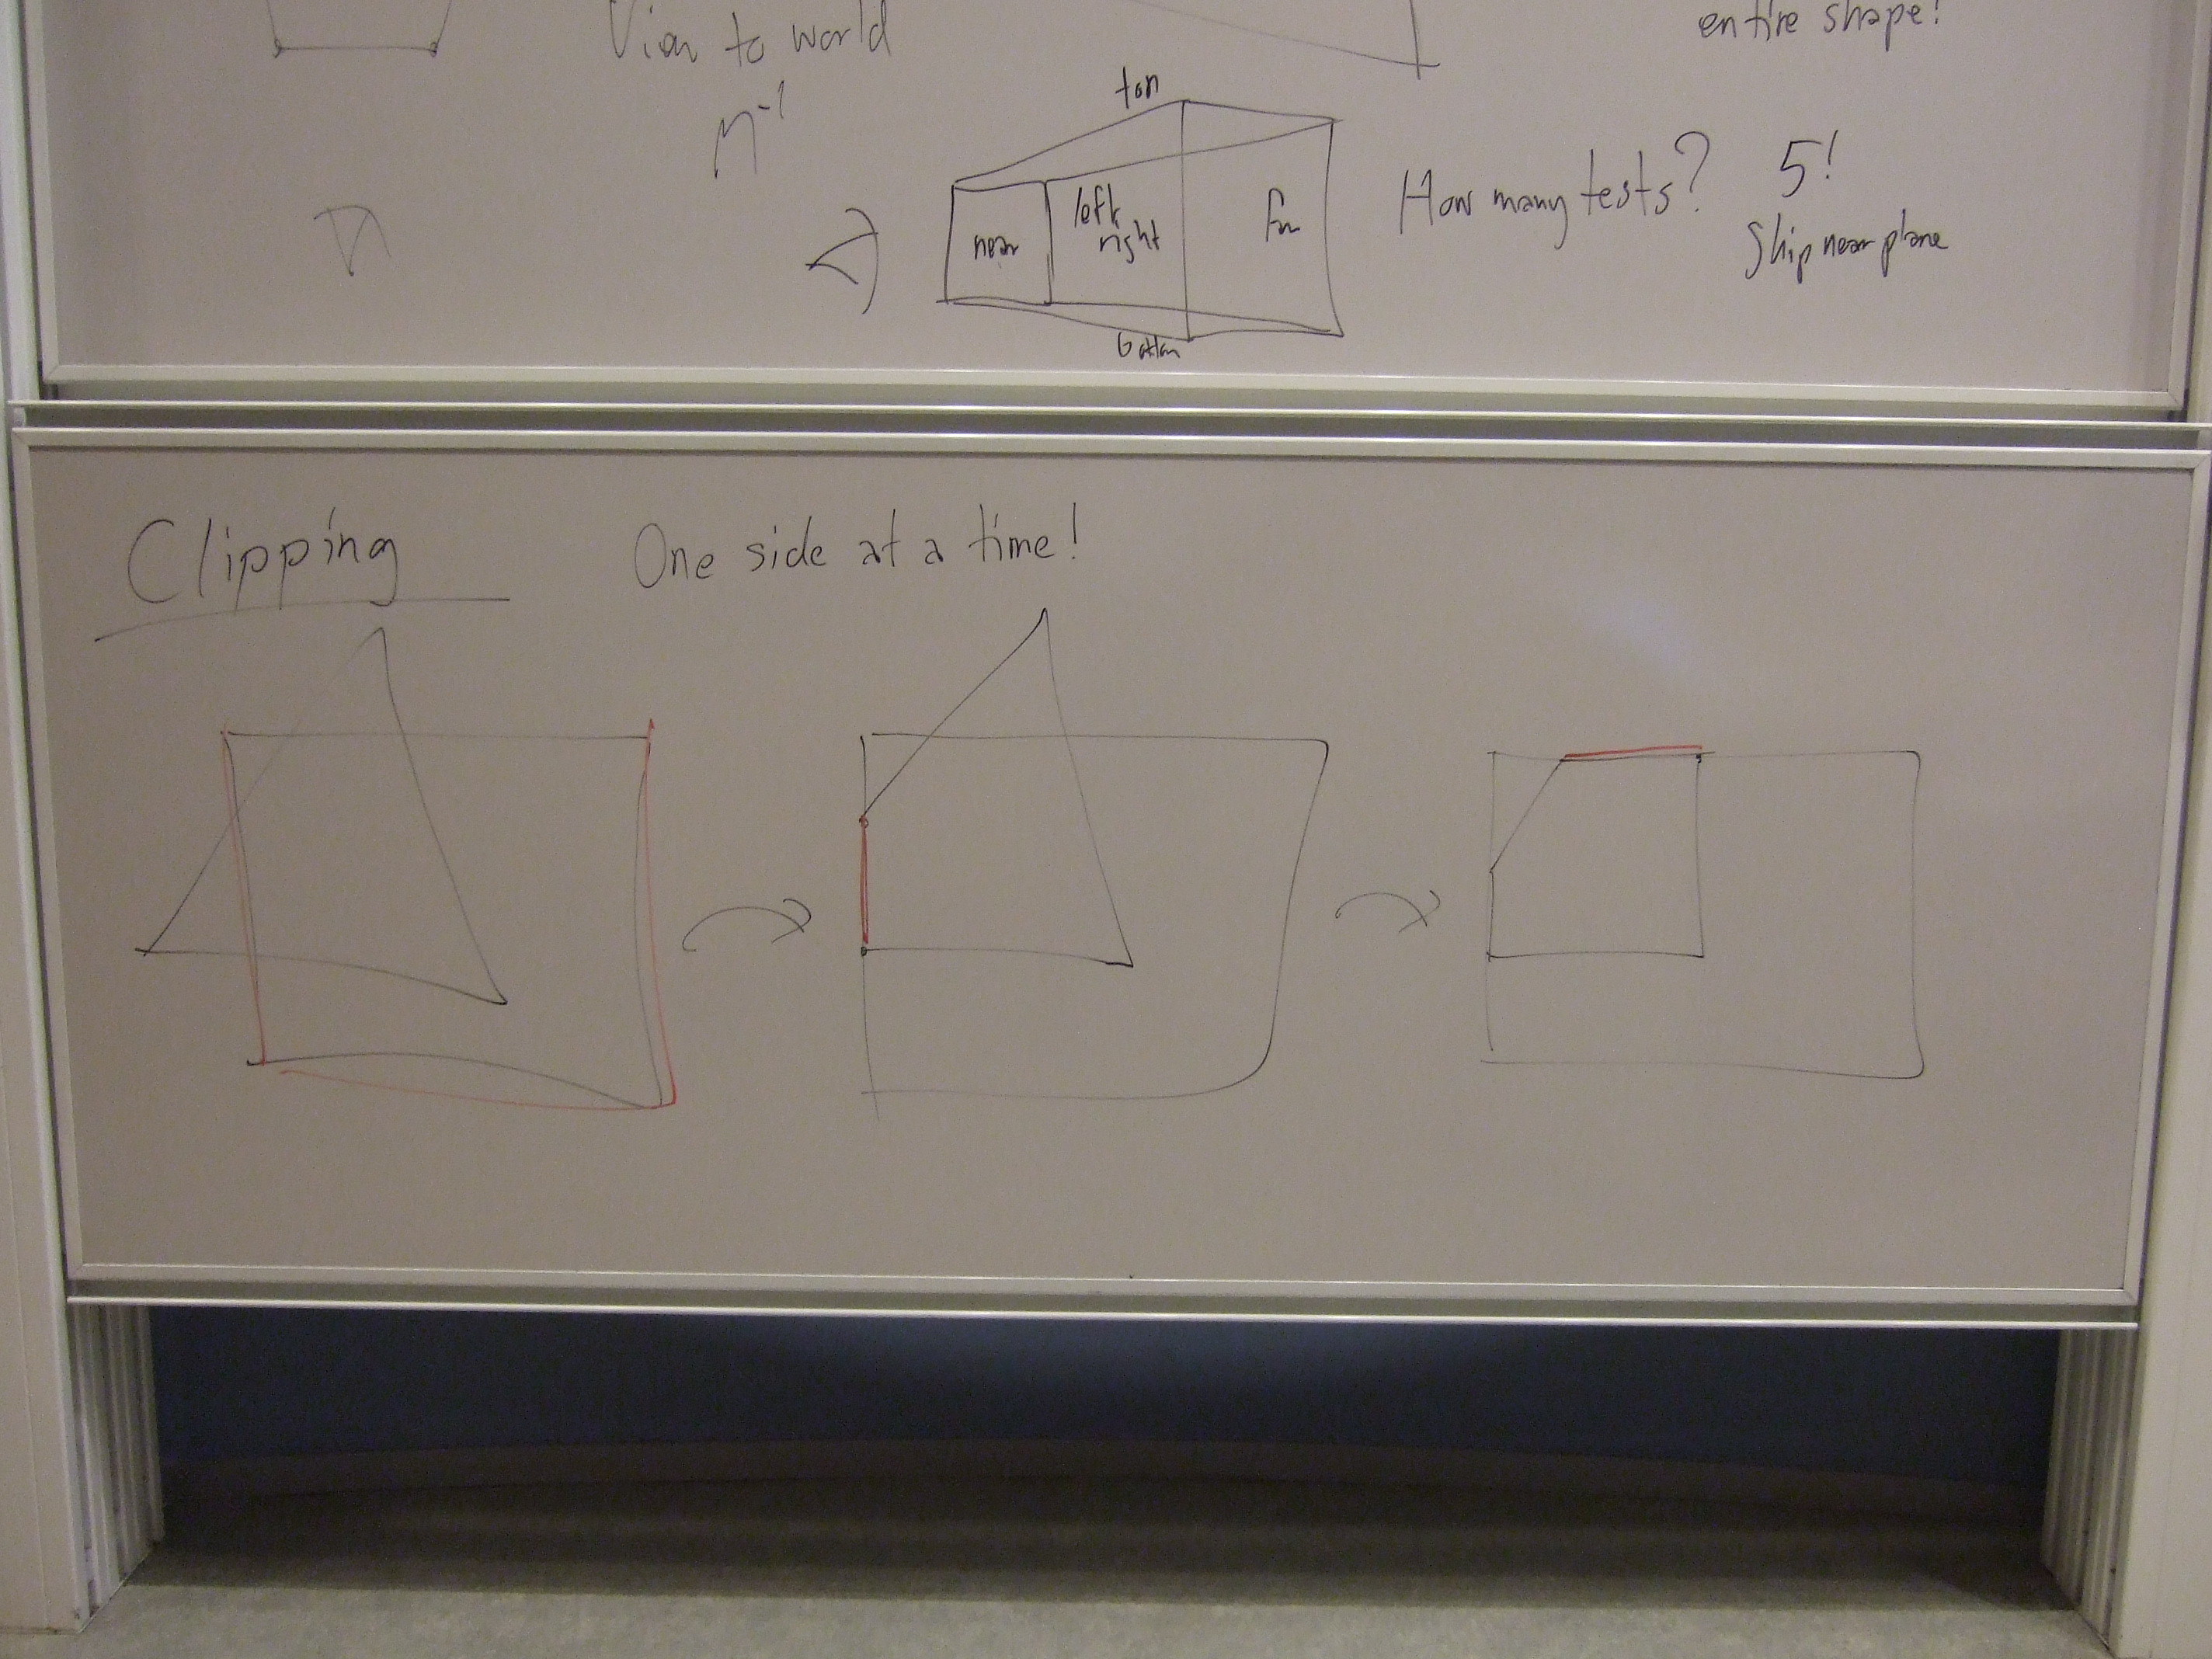 View to world
entire shape!
M⁻¹
top
near
left
right
far
bottom
How many tests? 5!
Skip near plane
Clipping
One side at a time!